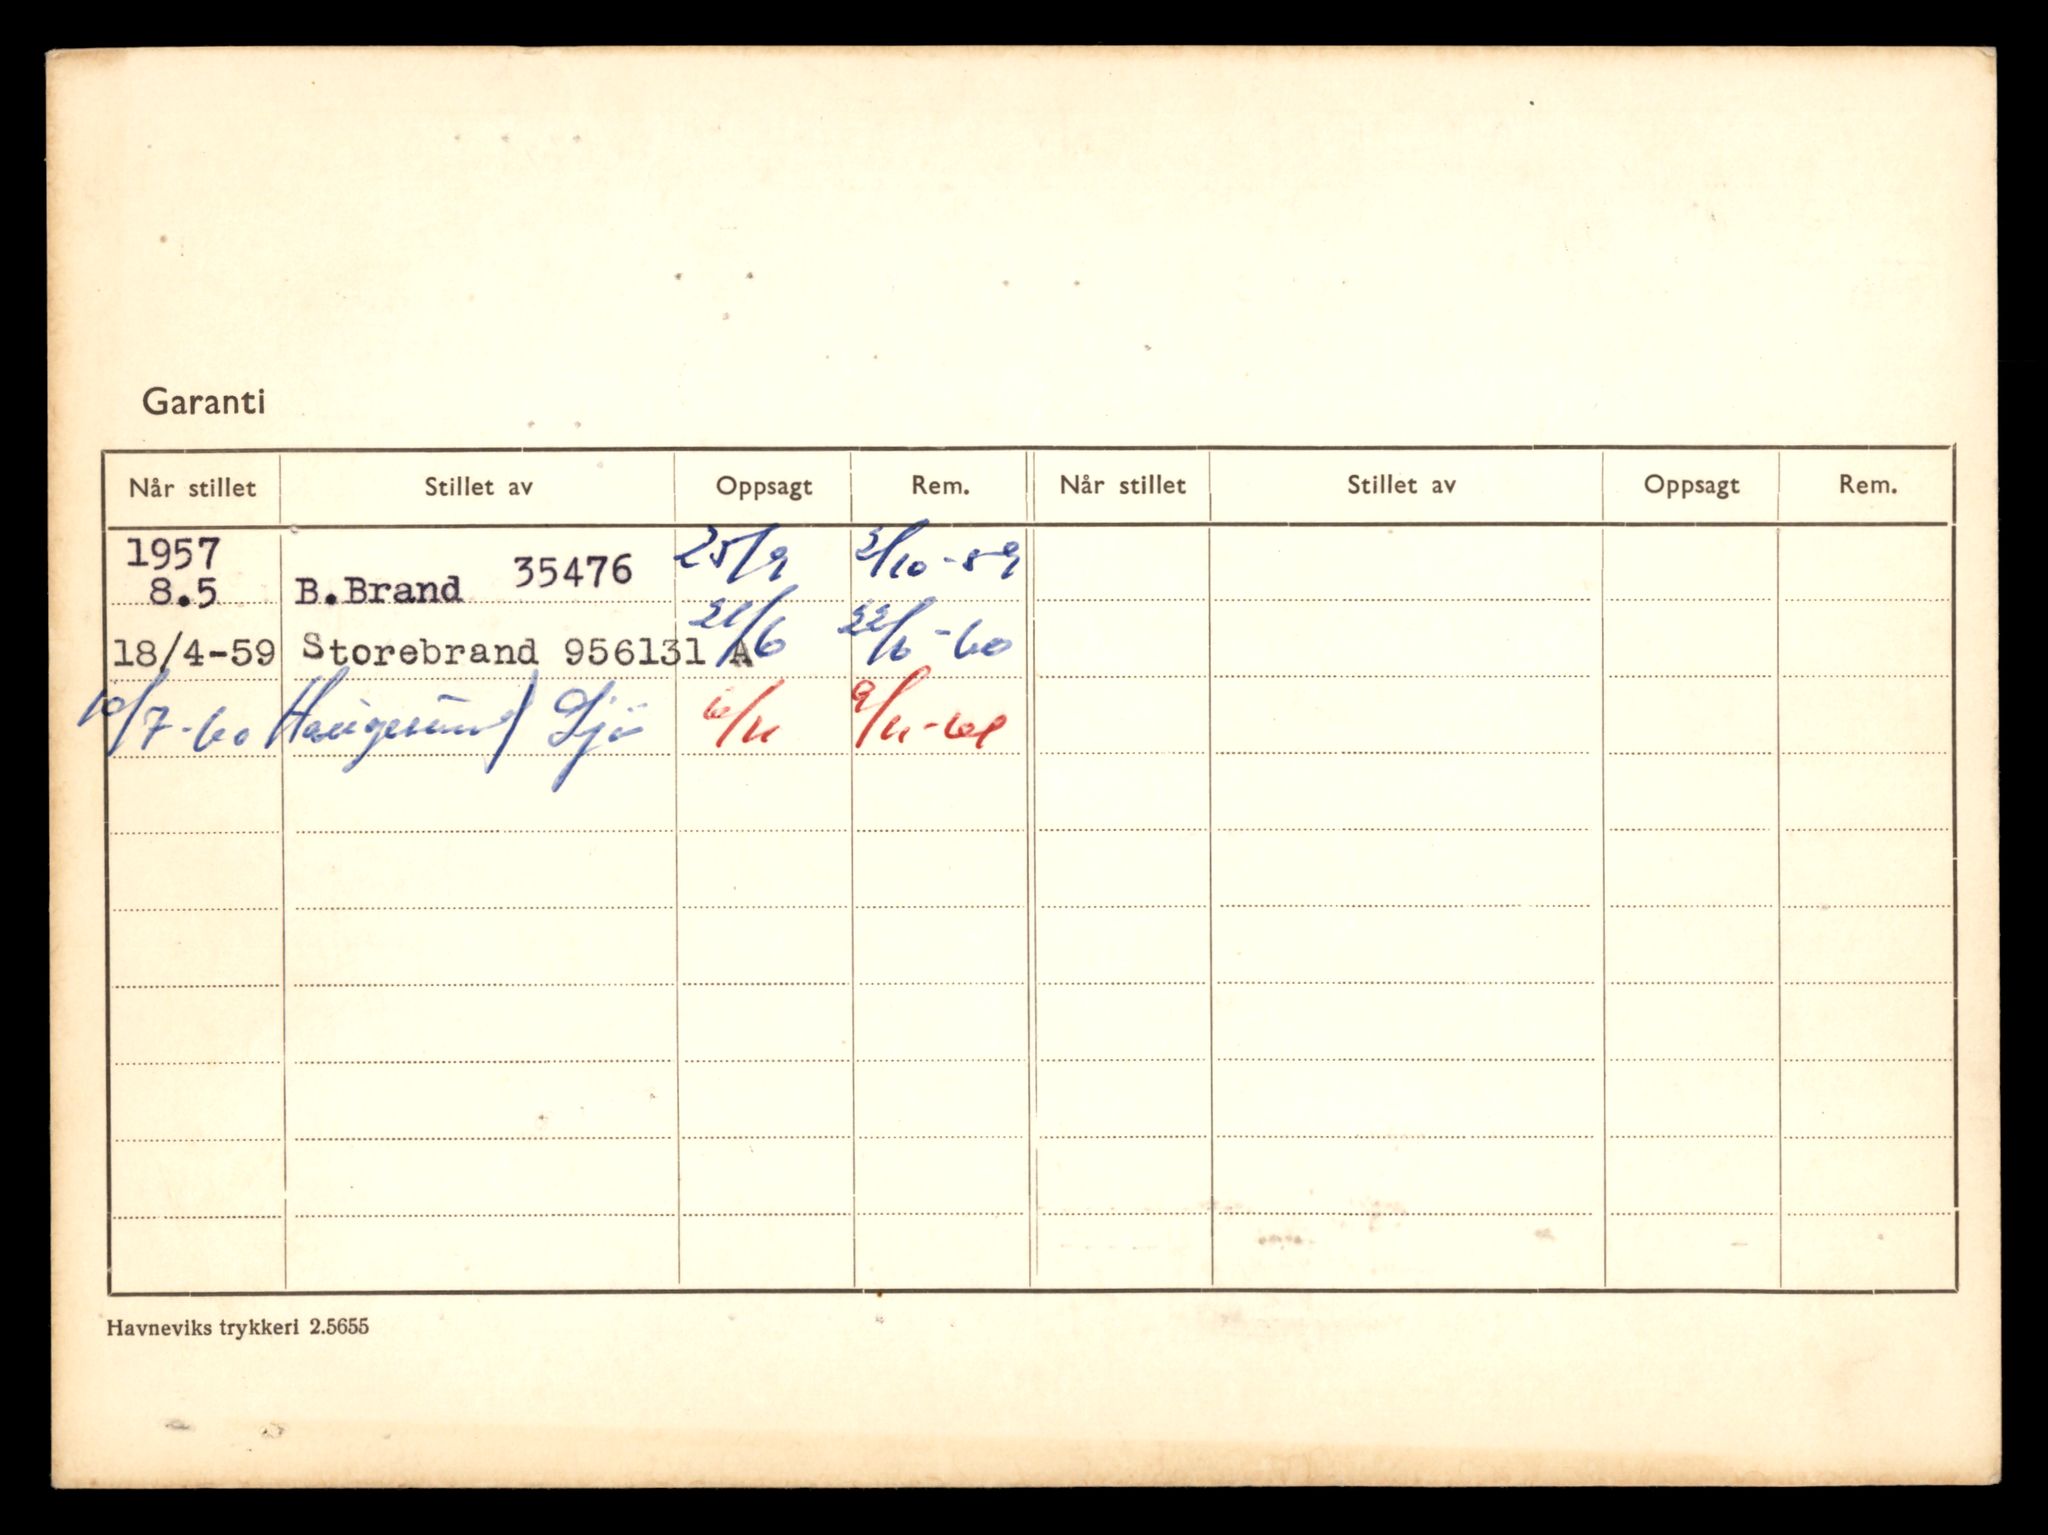 Garanti
Når stillet Stillet av Oppsagt Rem. Når stillet Stillet av Oppsagt Rem.
1957
8.5 B.Brand 35476 25/9 2/10-59
18/4-59 Storebrand 956131 A 21/6 22/6-60
10/7-60 Haugesund Sjø 6/11 9/11-61
Havneviks trykkeri 2.5655